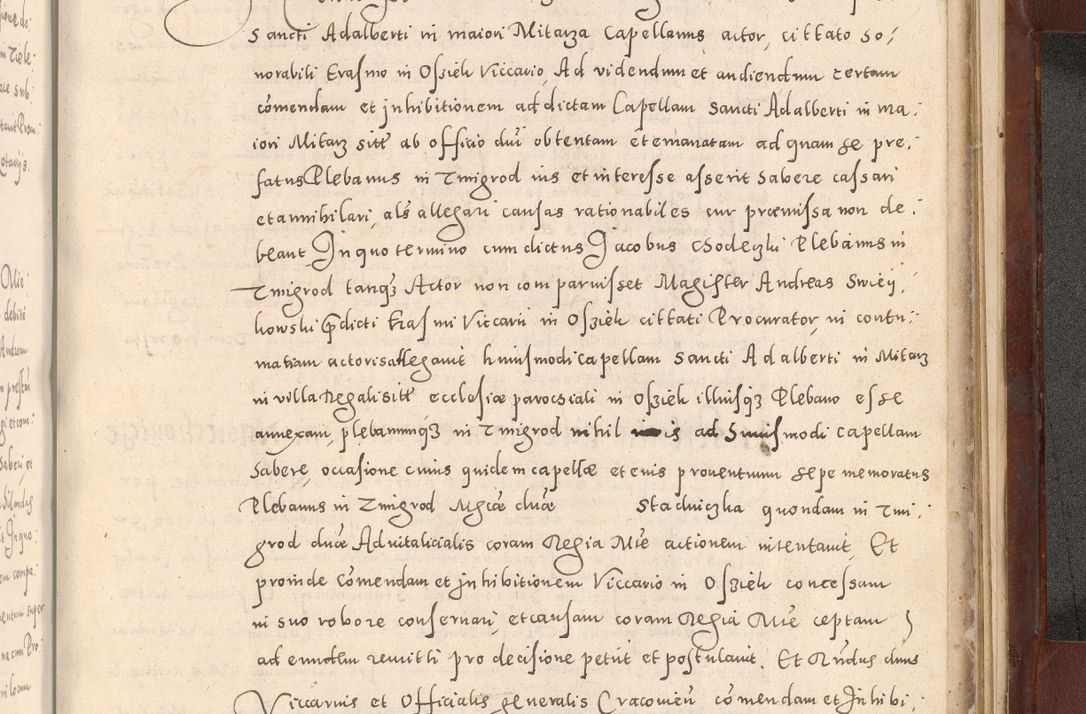 Sancti Adalberti in maiori Mitarza Capellanus actor, cittato Ho-
norabili Erasmo in Osziek Viccario, Ad videndum et audiendum certam
comendam et inhibitionem ad dictam Capellam Sancti Adalberti in ma-
iori Mitarz sitt ab officio dni obtentam et emanatam ad quam se pre-
fatus Plebanus in Zmigrod ius et interesse asserit habere cassari
et annihilari, als allegari causas rationabiles cur præmissa non de-
beant In quo termino cum dictus Jacobus Chodeczki Plebanus in
Zmigrod tanqz Actor non comparuisset Magister Andreas Swiey-
kowski Pdicti Erasmi Viccarii in Osziek cittati Procurator, in contu-
matiam actoris allegauit huiusmodi capellam Sancti Adalberti in Mitarz
in villa Regali sitt ecclesiæ parochiali in Osziek illiusqz Plebano esse
annexam, plebanumqz in Zmigrod nihil iuris ad Huiusmodi Capellam
Habere occasione cuius quidem capellæ et eius prouentuum sepe memoratus
Plebanus in Zmigrod Mgcæ dnæ Stadniczka quondam in Zmi-
grod dnæ Aduitalicialis coram Regia Mte actionem intentauit, Et
proinde Comendam et inhibitionem Viccario in Osziek concessam
in suo robore conseruari, et causam coram Regia Mte ceptam
ad eundem remitti pro decisione petiit et postulauit. Et Rndus dnus
Viccarius et Officialis generalis Cracouien comendam et Inhibi-